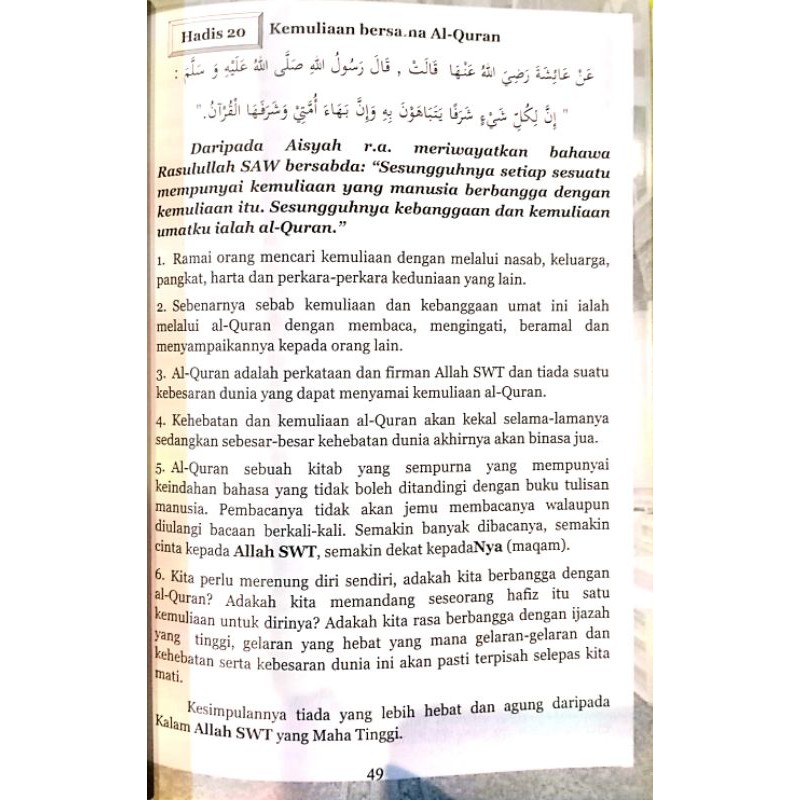 Hadis 20
Kemuliaan bersama Al-Quran
عَنْ عَائِشَةَ رَضِيَ اللهُ عَنْهَا قَالَتْ , قَالَ رَسُولُ اللهِ صَلَّى اللهُ عَلَيْهِ وَ سَلَّمَ :
" إِنَّ لِكُلِّ شَيْءٍ شَرَفًا يَتَبَاهَوْنَ بِهِ وَإِنَّ بَهَاءَ أُمَّتِيْ وَشَرَفَهَا الْقُرْآنُ."
Daripada Aisyah r.a. meriwayatkan bahawa
Rasulullah SAW bersabda: “Sesungguhnya setiap sesuatu
mempunyai kemuliaan yang manusia berbangga dengan
kemuliaan itu. Sesungguhnya kebanggaan dan kemuliaan
umatku ialah al-Quran.”
1. Ramai orang mencari kemuliaan dengan melalui nasab, keluarga,
pangkat, harta dan perkara-perkara keduniaan yang lain.
2. Sebenarnya sebab kemuliaan dan kebanggaan umat ini ialah
melalui al-Quran dengan membaca, mengingati, beramal dan
menyampaikannya kepada orang lain.
3. Al-Quran adalah perkataan dan firman Allah SWT dan tiada suatu
kebesaran dunia yang dapat menyamai kemuliaan al-Quran.
4. Kehebatan dan kemuliaan al-Quran akan kekal selama-lamanya
sedangkan sebesar-besar kehebatan dunia akhirnya akan binasa jua.
5. Al-Quran sebuah kitab yang sempurna yang mempunyai
keindahan bahasa yang tidak boleh ditandingi dengan buku tulisan
manusia. Pembacanya tidak akan jemu membacanya walaupun
diulangi bacaan berkali-kali. Semakin banyak dibacanya, semakin
cinta kepada Allah SWT, semakin dekat kepadaNya (maqam).
6. Kita perlu merenung diri sendiri, adakah kita berbangga dengan
al-Quran? Adakah kita memandang seseorang hafiz itu satu
kemuliaan untuk dirinya? Adakah kita rasa berbangga dengan ijazah
yang tinggi, gelaran yang hebat yang mana gelaran-gelaran dan
kehebatan serta kebesaran dunia ini akan pasti terpisah selepas kita
mati.
Kesimpulannya tiada yang lebih hebat dan agung daripada
Kalam Allah SWT yang Maha Tinggi.
49